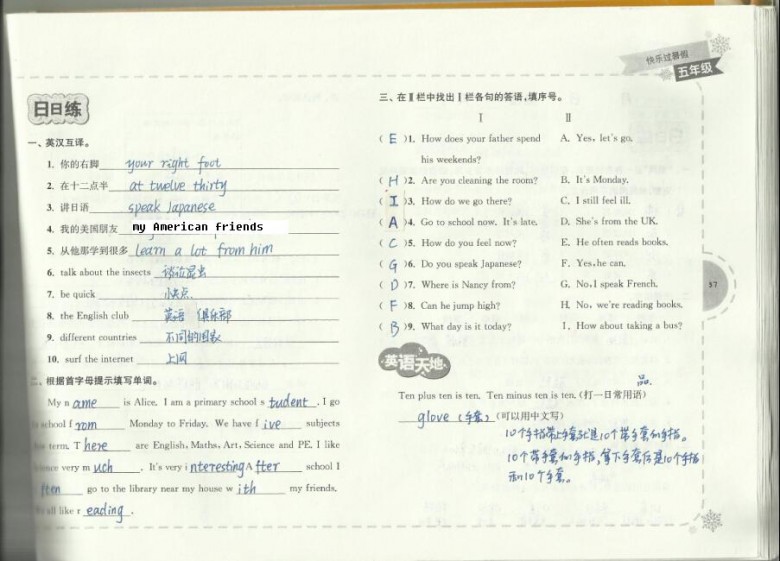 快乐过暑假
五年级
日日练
一、英汉互译。
1. 你的右脚 your right foot
2. 在十二点半 at twelve thirty
3. 讲日语 speak Japanese
4. 我的美国朋友 my American friends
5. 从他那学到很多 learn a lot from him
6. talk about the insects 谈论昆虫
7. be quick 小夹点.
8. the English club 英语 俱乐部
9. different countries 不同的国家
10. surf the internet 上网
二、根据首字母提示填写单词。
My name is Alice. I am a primary school student. I go
school from Monday to Friday. We have five subjects
term. There are English, Maths, Art, Science and PE. I like
very much. It's very interesting After school I
often go to the library near my house with my friends.
all like reading.
三、在Ⅱ栏中找出Ⅰ栏各句的答语,填序号。
Ⅰ Ⅱ
( E )1. How does your father spend A. Yes, let's go.
his weekends?
( H )2. Are you cleaning the room? B. It's Monday.
( I )3. How do we go there? C. I still feel ill.
( A )4. Go to school now. It's late. D. She's from the UK.
( C )5. How do you feel now? E. He often reads books.
( G )6. Do you speak Japanese? F. Yes, he can.
( D )7. Where is Nancy from? G. No, I speak French.
( F )8. Can he jump high? H. No, we're reading books.
( B )9. What day is it today? I. How about taking a bus?
37
英语天地
品.
Ten plus ten is ten. Ten minus ten is ten. (打一日常用语)
glove (手套) (可以用中文写)
10个手指带上手套就是10个带手套的手指。
10个带手套的手指,拿下手套后是10个手指
和10个手套。